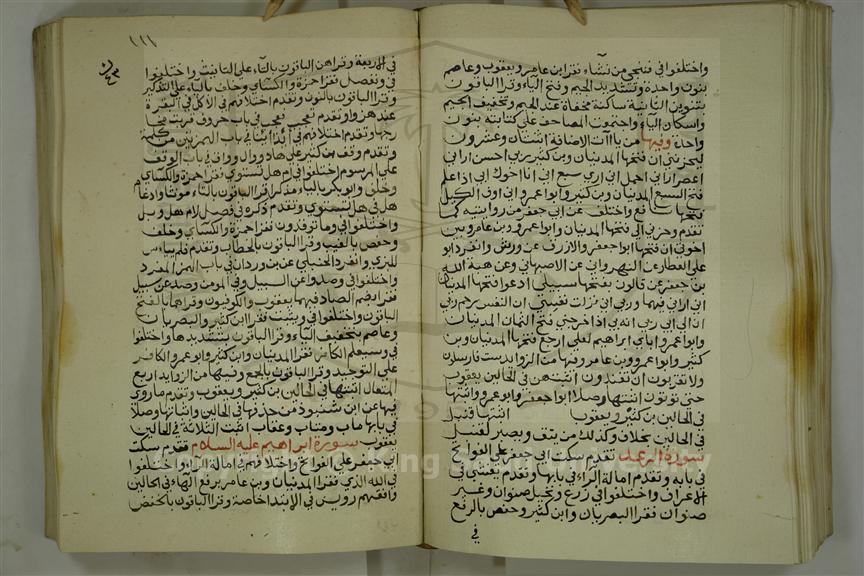 واختلفوا في فننجي من نشاء نقرا بن عامر ويعقوب وعاصم
بنون واحدة وتشديد الجيم وفتح الياء وقرا الباقون
بنونين الثانية ساكنة مخفاة عند الجيم وتخفيف الجيم
واسكان الياء واجتمعت المصاحف على كتابته بنون
واحدة وفيها من ياآت الاضافة اثنتان وعشرون
ليحزنني ان فتحها المدنيان وبن كثير ربي احسن اراني
اعصر اراني احمل اني اري سبع اني انا اخوك ابي اذ اعلم
فتح السبع المدنيان وبن كثير وابوعمرو اني اوف الكيل
فتحها نافع واختلف عن ابي جعفر من روايتيه كما
تقدم وحزني الى فتحها المدنيان وابوعمرو وبن عامر وبين
اخوتي ان فتحها ابوجعفر والازرق عن ورش وانفرد ابو
علي العطار عن النهرواني عن الاصبهاني وعن هبة الله
بن جعفر عن قالون بفتحها سبيلي ادعوا فتحها المدنيان
اني اراني فيهما وربي اني تركت نفسي ان النفس رحم ربي
ان لي ابي ربي انه بي اذ اخرجني فتح الثمان المدنيان
وابوعمرو اباي ابراهيم لعلي ارجع فتحها المدنيان وبن
كثير وابوعمرو وبن عامر وفيها من الزوايد ست فارسلون
ولا تقربون ان تفندون اثبتهن في الحالين يعقوب
حتى توتون اثبتها وصلا ابوجعفر وابوعمرو واثبتها
في الحالين بن كثير ويعقوب اثبتها قنبل
في الحالين بخلاف وكذلك من يتق ويصبر لقنبل
سورة الرعد تقدم سكت ابي جعفر على الفواتح
في بابه وتقدم امالة الراء في بابها وتقدم يغشي في
الاعراف واختلفوا في زرع ونخيل صنوان وغير
صنوان فقرا البصريان وابن كثير وحفص بالرفع
في
١١١
في الاربعة وقراهن الباقون بالتاء على التانيث واختلفوا
في ونفضل فقرا حمزة والكسائي وخلف بالياء على التذكير
وقرا الباقون بالنون وتقدم اختلافهم في الاكل في البقرة
عند هزوا وتقدم تعجب فعجب في باب حروف قربت مخا
رجها وتقدم اختلافهم في ائذا ائنا في باب الهمزتين من كلمة
وتقدم وقف بن كثير على هاد ووال وواق في باب الوقف
على المرسوم اختلفوا في ام هل تستوي فقرا حمزة والكسائي
وخلف وابوبكر بالياء مذكرا وقرا الباقون بالتاء مونثا وادغام
هل في هل تستوي وتقدم ذكره في فصل لام هل وبل
واختلفوا في وما توقدون فقرا حمزة والكسائي وخلف
وحفص بالغيب وقرا الباقون بالخطاب وتقدم فلم ييأس
للبزي وانفرد الحنبلي عن بن وردان في باب الهمز المفرد
واختلفوا في وصدوا عن السبيل وفي المومن وصد عن سبيل
فقرا بضم الصاد فيهما يعقوب والكوفيون وقراهما بالفتح
الباقون واختلفوا في ويثبت فقرا ابن كثير والبصريان
وعاصم بتخفيف الباء وقرا الباقون بتشديدها واختلفوا
في وسيعلم الكافر فقرا المدنيان وابن كثير وابوعمرو الكافر
على التوحيد وقرا الباقون بالجمع وفيها من الزوايد اربع
المتعال اثبتها في الحالين بن كثير ويعقوب وتقدم ما روي
فيها عن ابن شنبوذ من حذفها في الحالين واثباتها وصلا
في بابها ماب ومتاب وعقاب اثبت الثلاثة في الحالين
يعقوب سورة ابراهيم عليه السلام تقدم سكت
ابي جعفر على الفواتح واختلافهم في امالة الراء واختلفوا
في الله الذي فقرا المدنيان وبن عامر برفع الهاء في الحالين
وافقهم رويس في الابتدا خاصة وقرا الباقون بالخفض